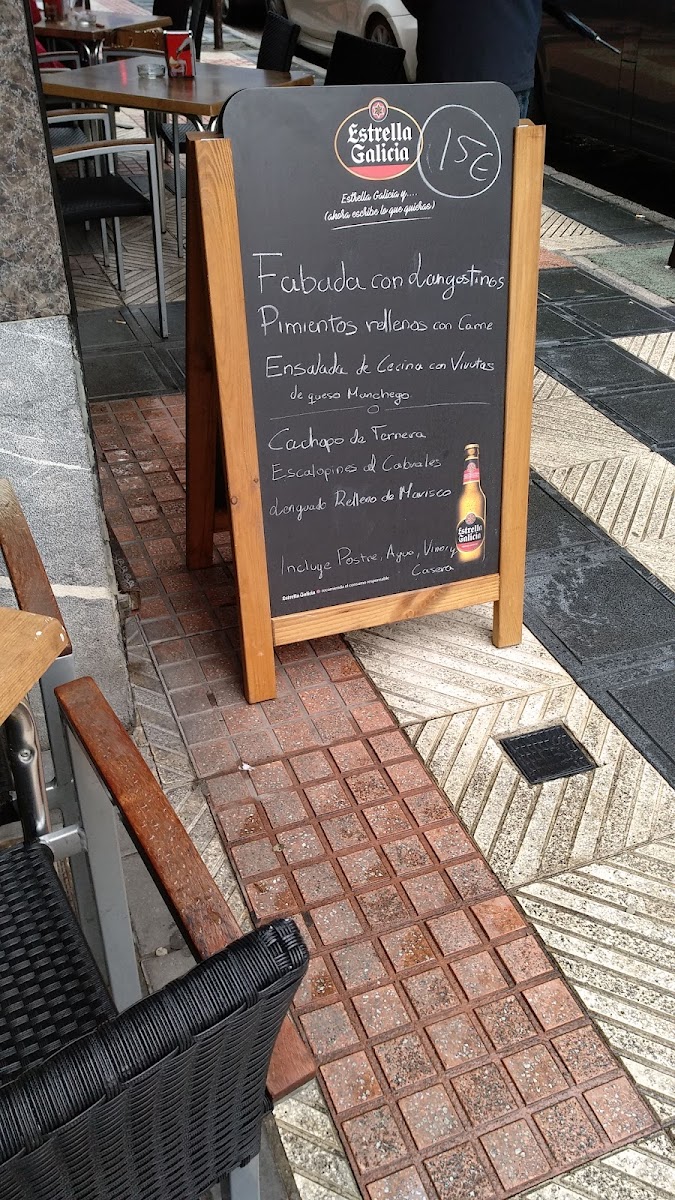 Estrella
Galicia
15€
Estrella Galicia y....
(ahora escribe lo que quieras)
Fabada con Langostinos
Pimientos rellenos con Carne
Ensalada de Cecina con Virutas
de queso Manchego
Cachopo de Ternera
Escalopines al Cabrales
Lenguado Relleno de Marisco
Incluye Postre, Agua, Vino y
Casera
Estrella Galicia
Estrella Galicia recomienda el consumo responsable